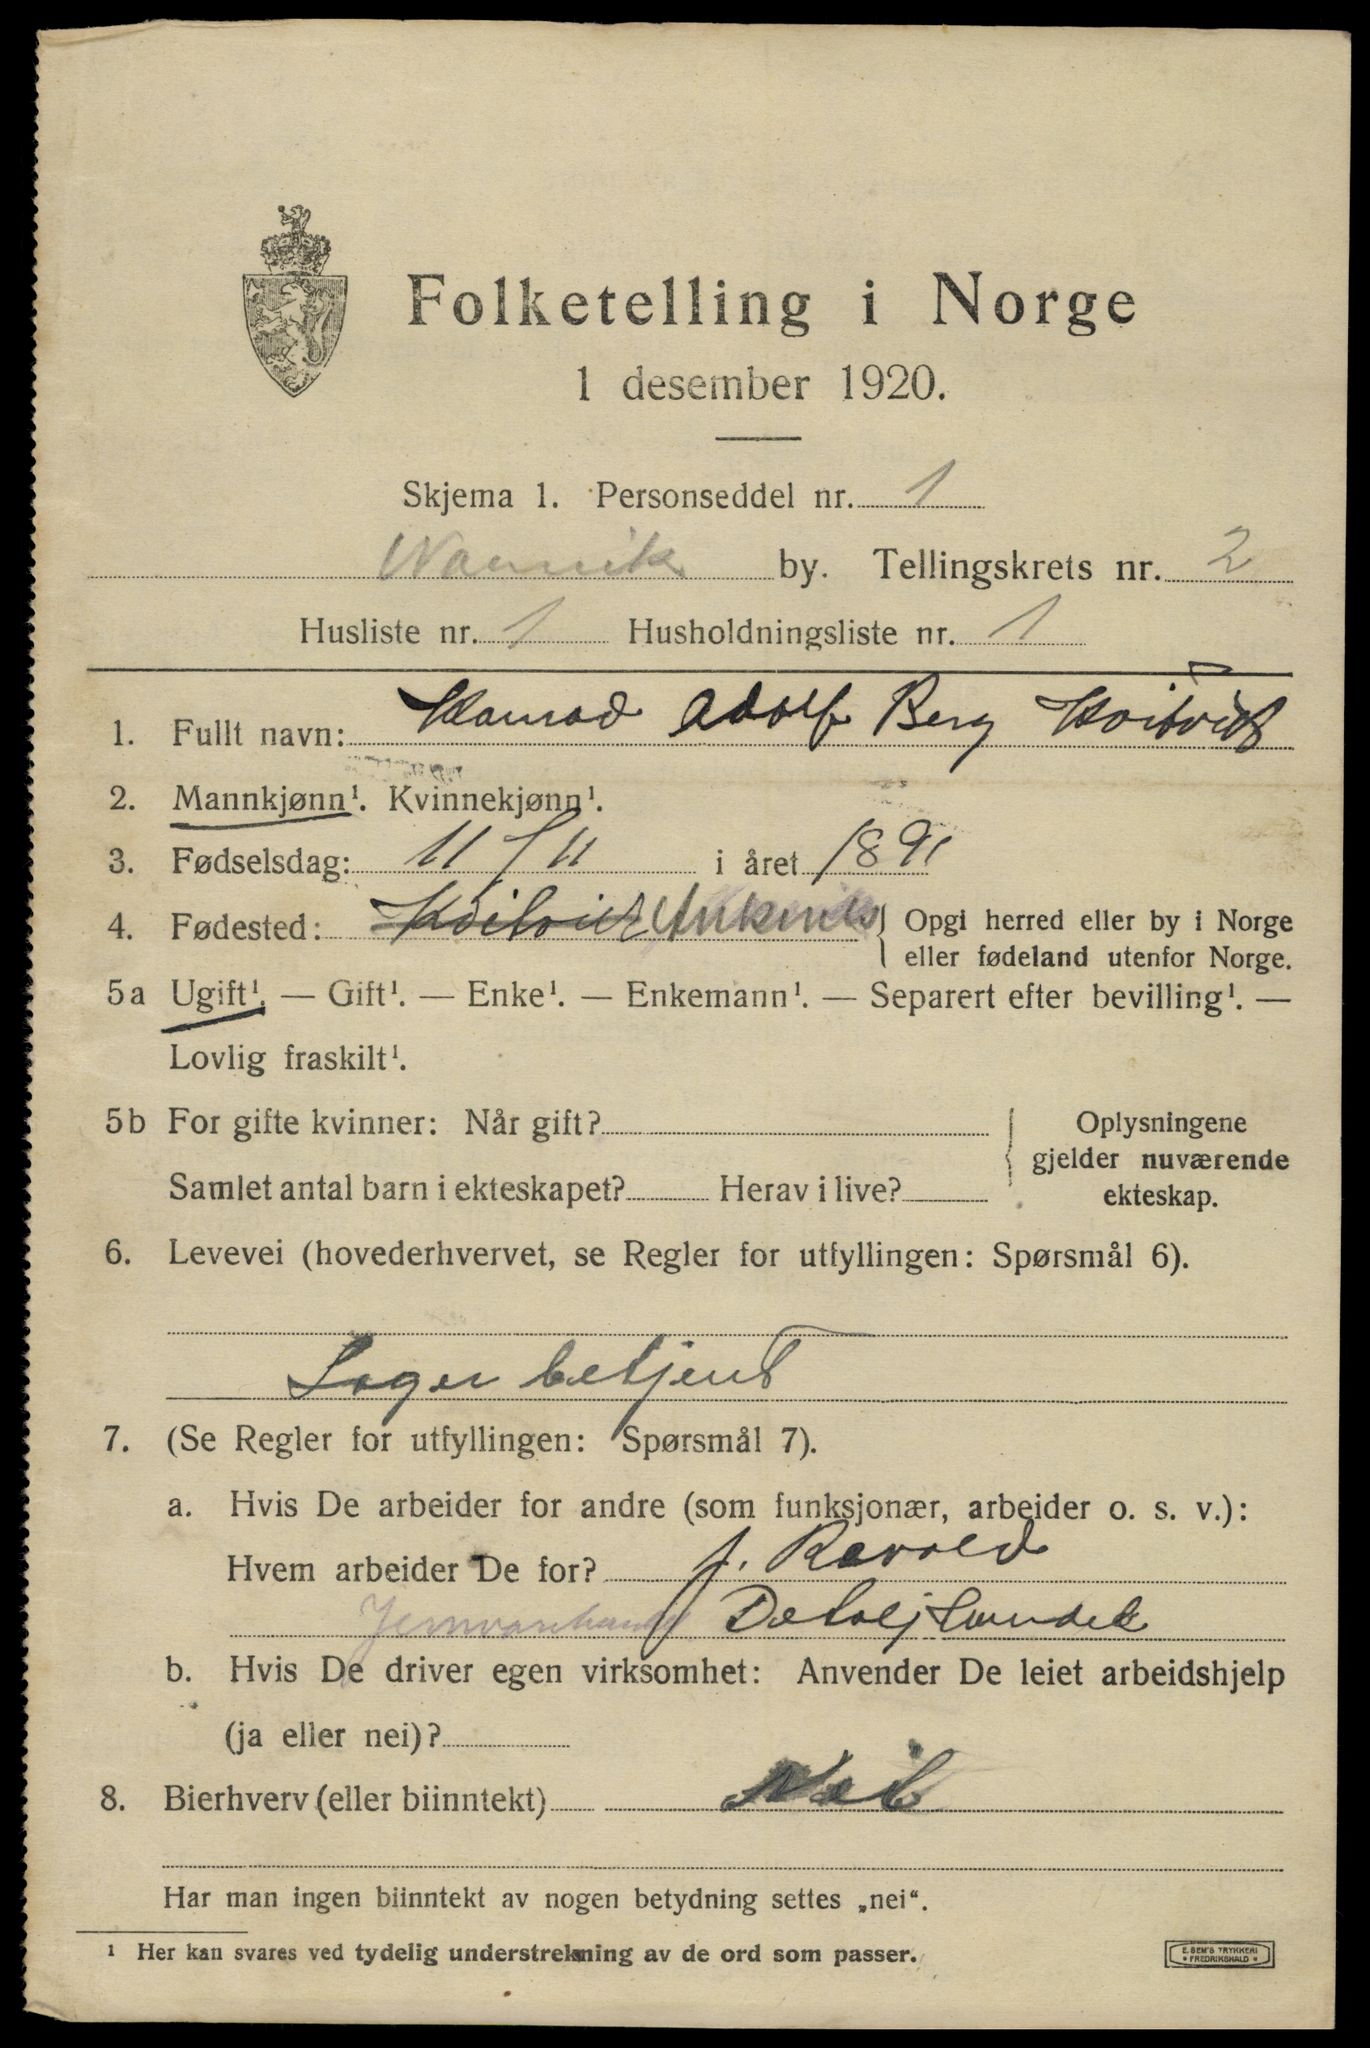 Folketelling i Norge
1 desember 1920.
Skjema 1. Personseddel nr. 1
Narvik by. Tellingskrets nr. 2
Husliste nr. 1 Husholdningsliste nr. 1
1. Fullt navn: Konrad Adolf Berg Hvitvik
2. Mannkjønn¹. Kvinnekjønn¹.
3. Fødselsdag: 11/11 i året 1891
4. Fødested: Hvitvik Ankenes { Opgi herred eller by i Norge
eller fødeland utenfor Norge.
5a Ugift¹. — Gift¹. — Enke¹. — Enkemann¹. — Separert efter bevilling¹. —
Lovlig fraskilt¹.
5b For gifte kvinner: Når gift? { Oplysningene
gjelder nuværende
Samlet antal barn i ekteskapet? Herav i live? ekteskap.
6. Levevei (hovederhvervet, se Regler for utfyllingen: Spørsmål 6).
Lager betjent
7. (Se Regler for utfyllingen: Spørsmål 7).
a. Hvis De arbeider for andre (som funksjonær, arbeider o. s. v.):
Hvem arbeider De for? J. Revold
Jernvarehandel Detalj handel
b. Hvis De driver egen virksomhet: Anvender De leiet arbeidshjelp
(ja eller nei)?
8. Bierhverv (eller biinntekt)
Har man ingen biinntekt av nogen betydning settes „nei“.
¹ Her kan svares ved tydelig understrekning av de ord som passer.
E. SEM'S TRYKKERI
* FREDRIKSHALD *